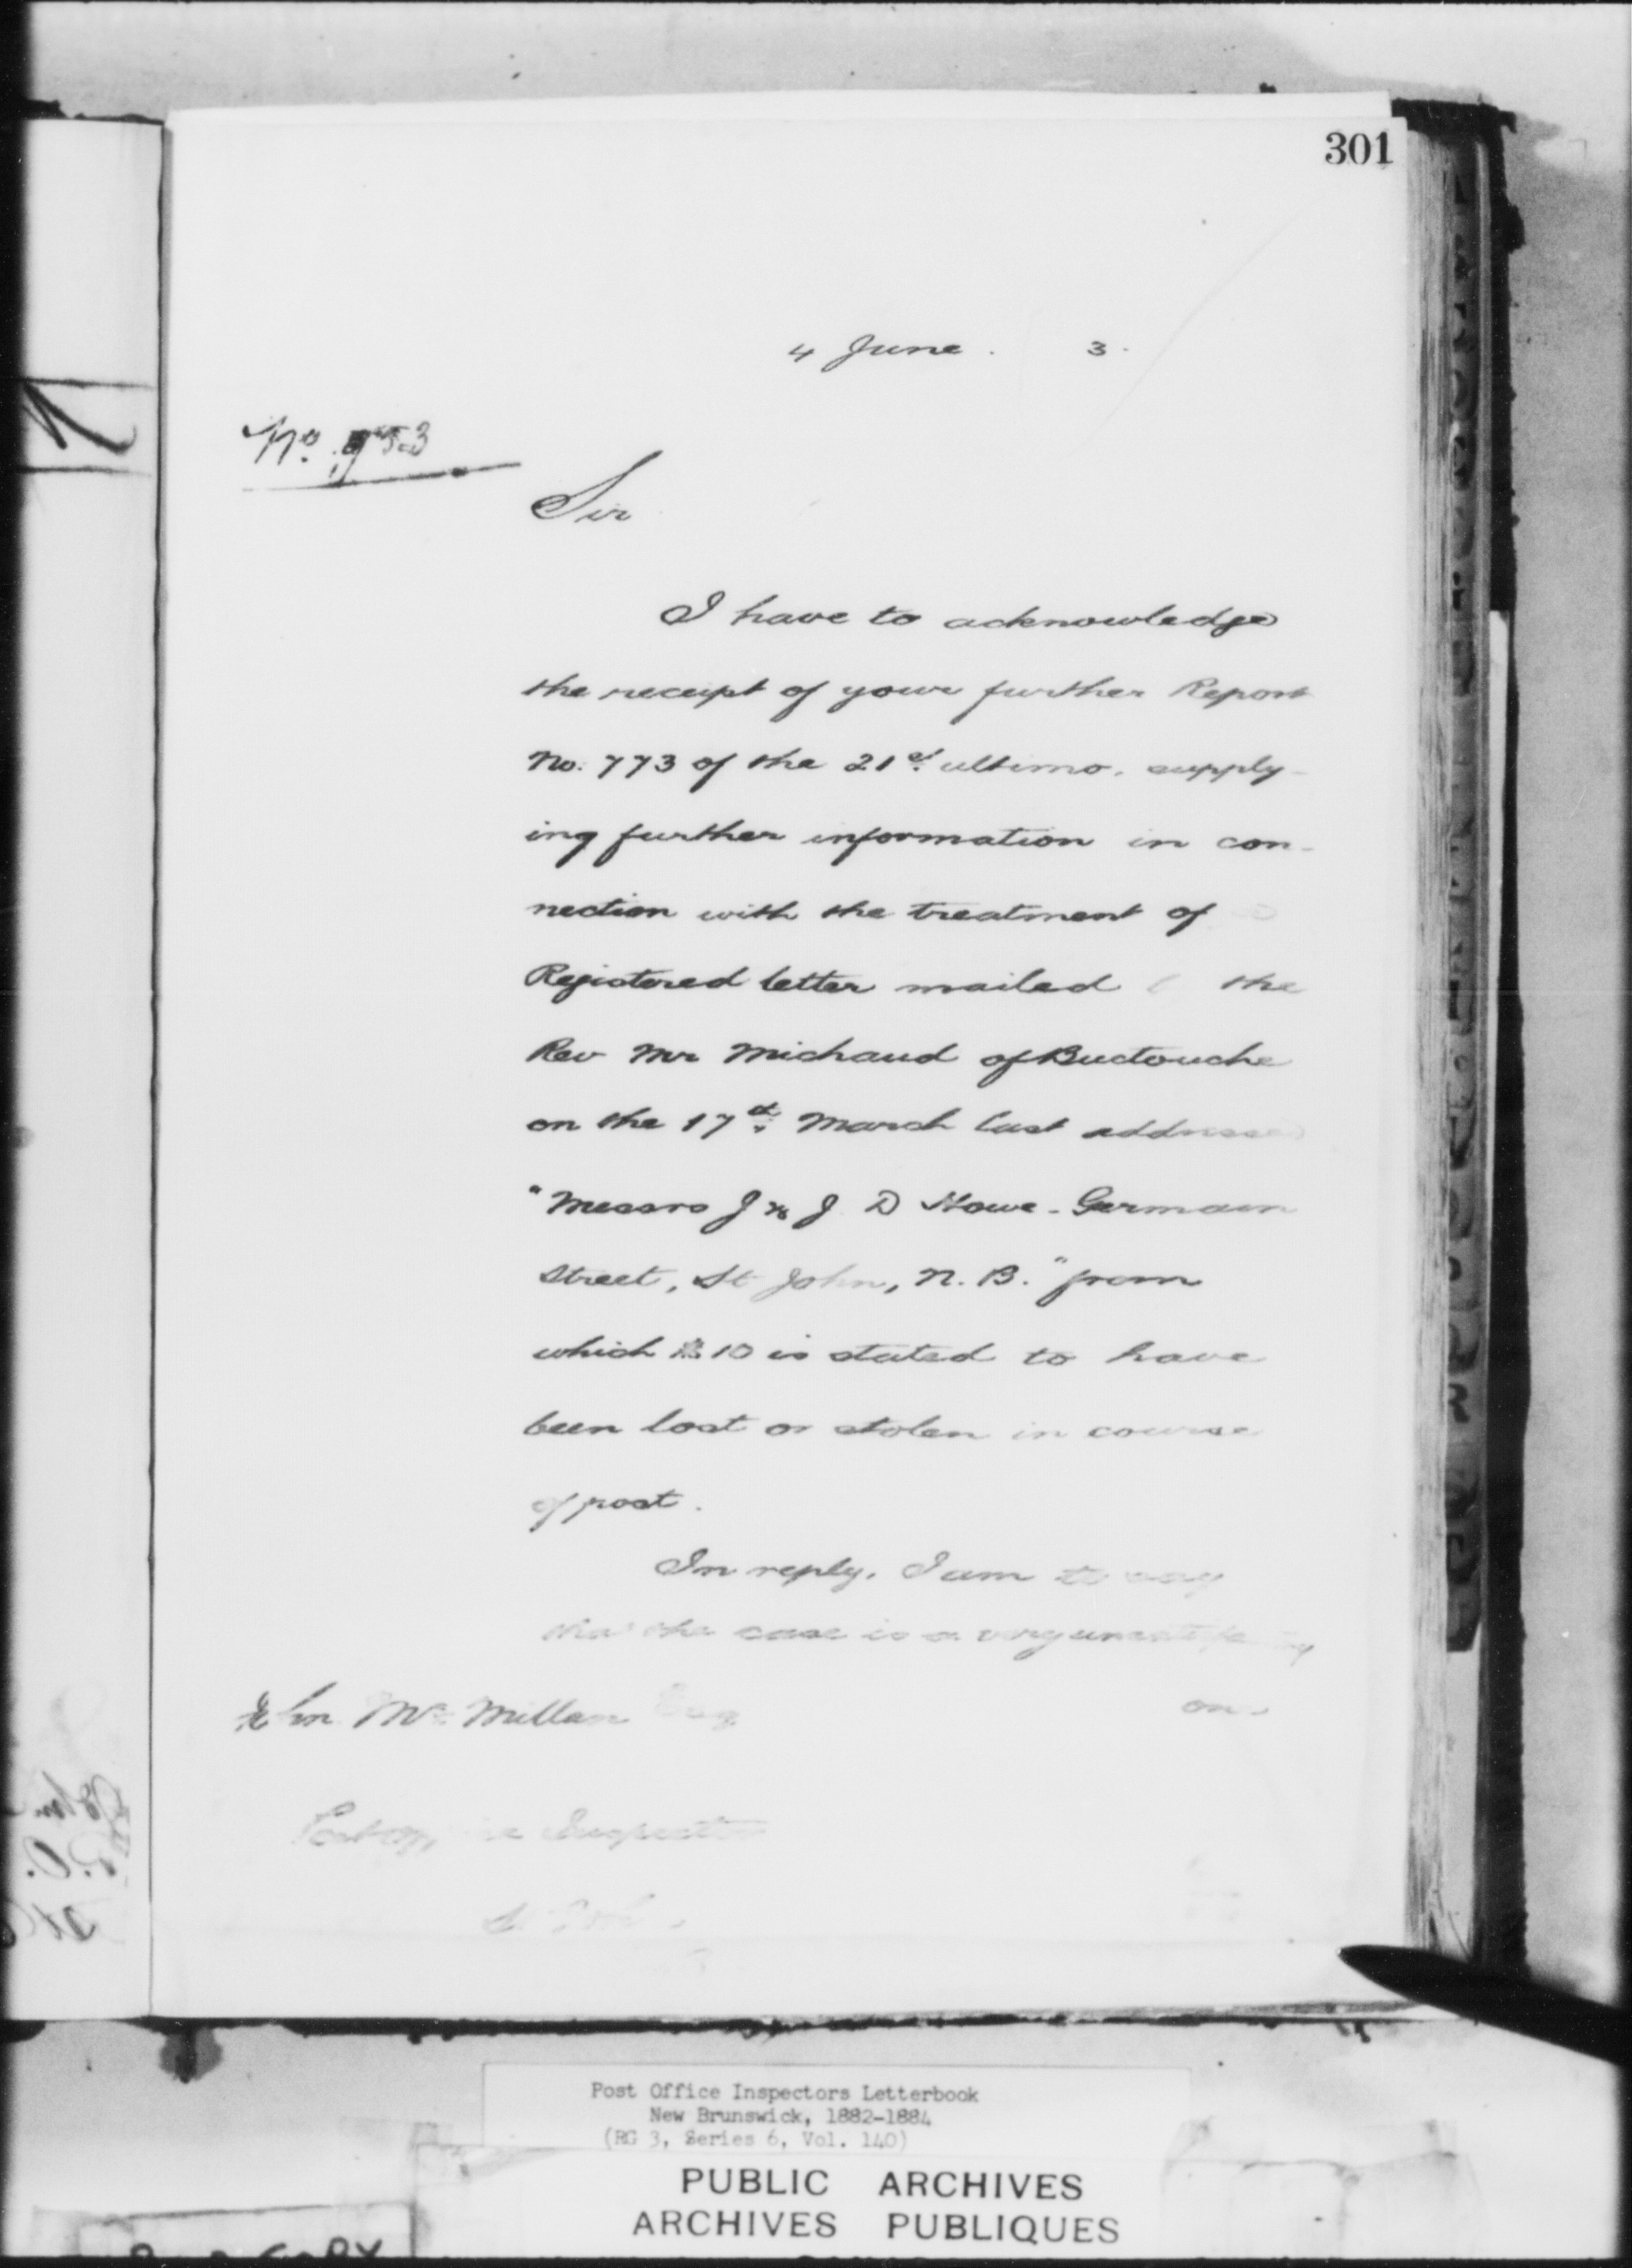 301
4 June. 3.
No. 953
Sir
I have to acknowledge
the receipt of your further Report
No. 773 of the 21st ultimo, supply-
ing further information in con-
nection with the treatment of
Registered letter mailed the
Rev Mr Michaud of Buctouche
on the 17th March last addressed
"Messrs J & J D Howe - Germain
Street, St John, N. B." from
which $10 is stated to have
been lost or stolen in course
of post.
In reply, I am to say
that the case is a very unsatisfactory
one
John McMillan Esq
Post Office Inspector
St John
Post Office Inspectors Letterbook
New Brunswick, 1882-1884
(RG 3, Series 6, Vol. 140)
PUBLIC ARCHIVES
ARCHIVES PUBLIQUES
COPY